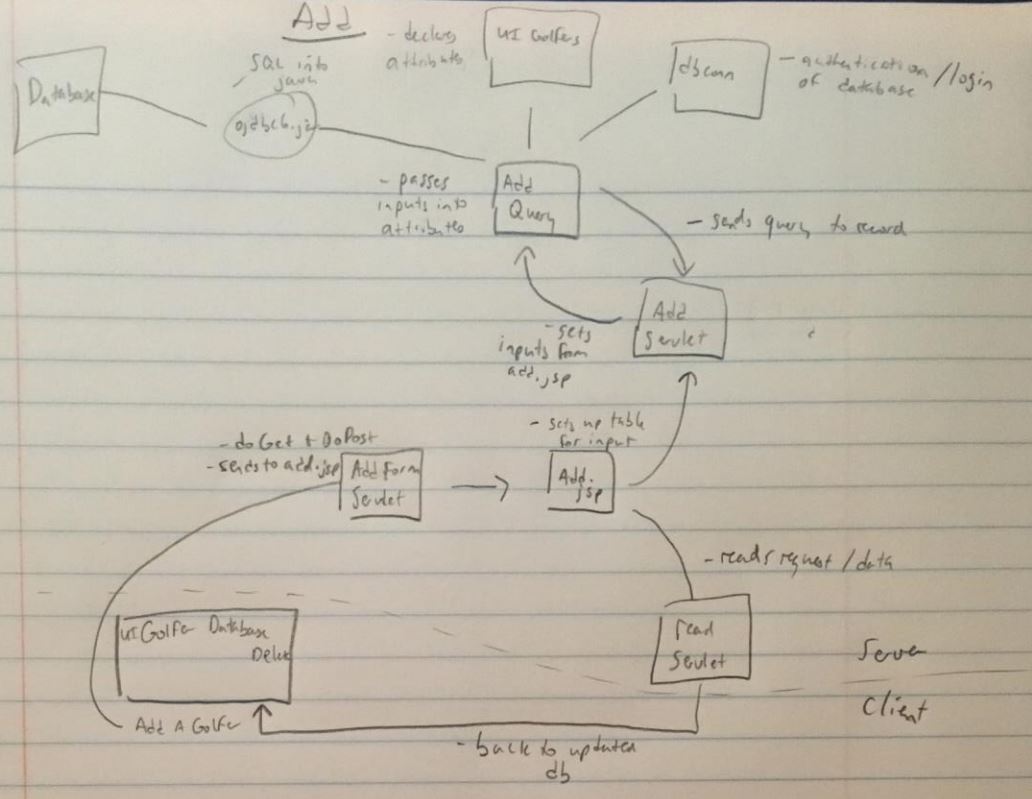 Add
- declares
attributes
UI Golfers
dbconn
- authentication /login
of database
Database
SQL into
java
- passes
inputs into
attributes
Add
Query
- sends query to record
Add
Servlet
- sets
inputs from
add.jsp
- sets up table
for input
- doGet + DoPost
- sends to add.jsp
Add Form
Servlet
Add.
jsp
- reads request / data
UI Golfer Database
read
Servlet
Server
Client
Add A Golfer
- back to updated
db